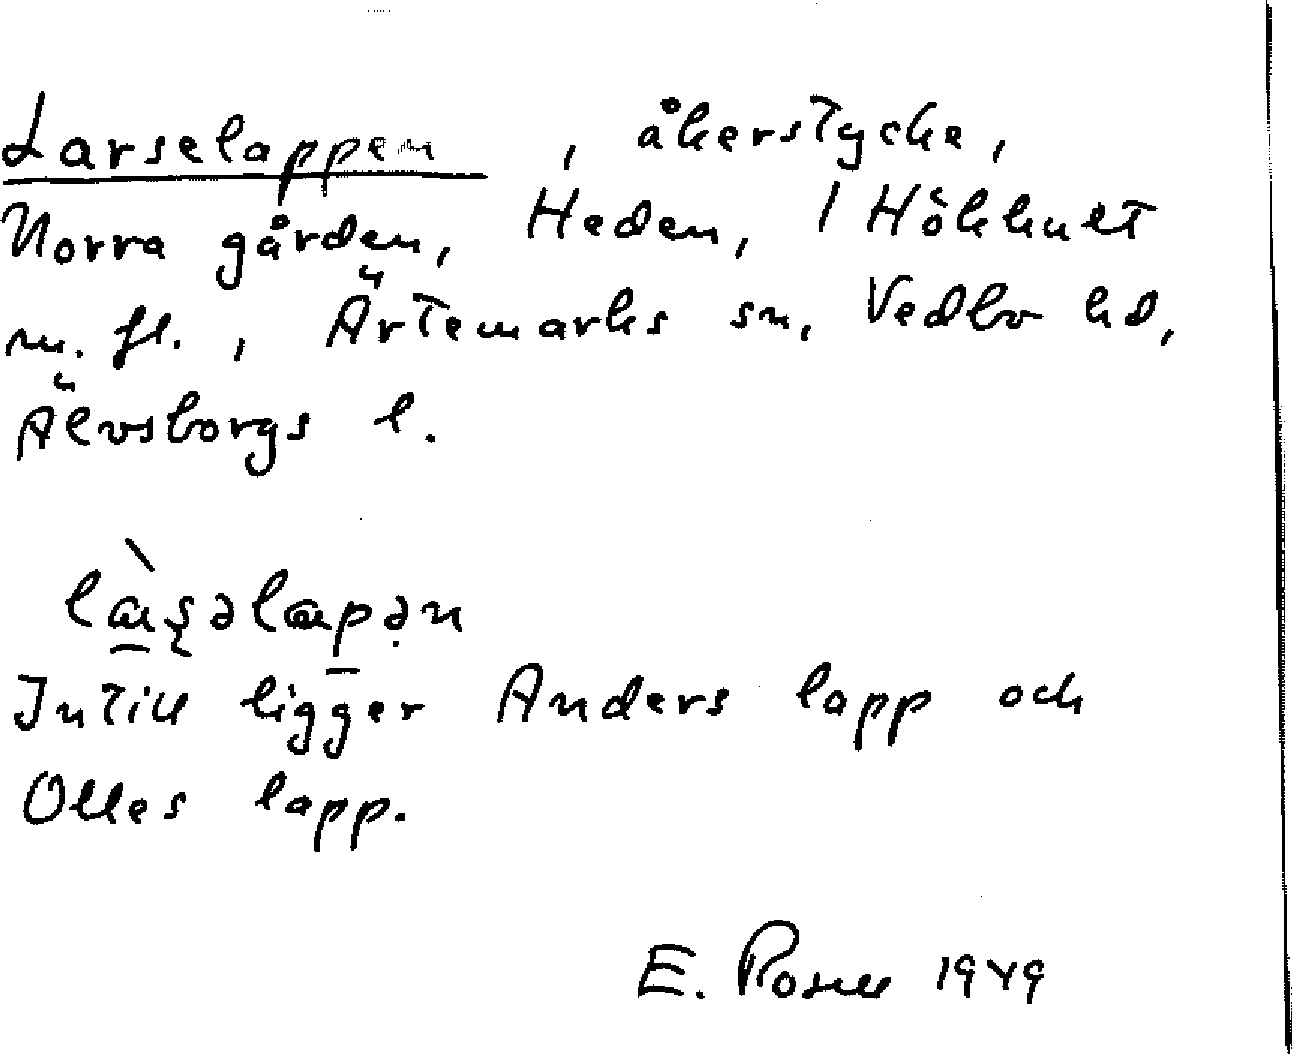 Larselappen, åkerstycke,
Norra gården, Heden, 1 Hökhult
m. fl., Ärtemarks sn, Vedbo hd,
Älvsborgs l.
Intill ligger Anders lapp och
Olles lapp.
E. 1949